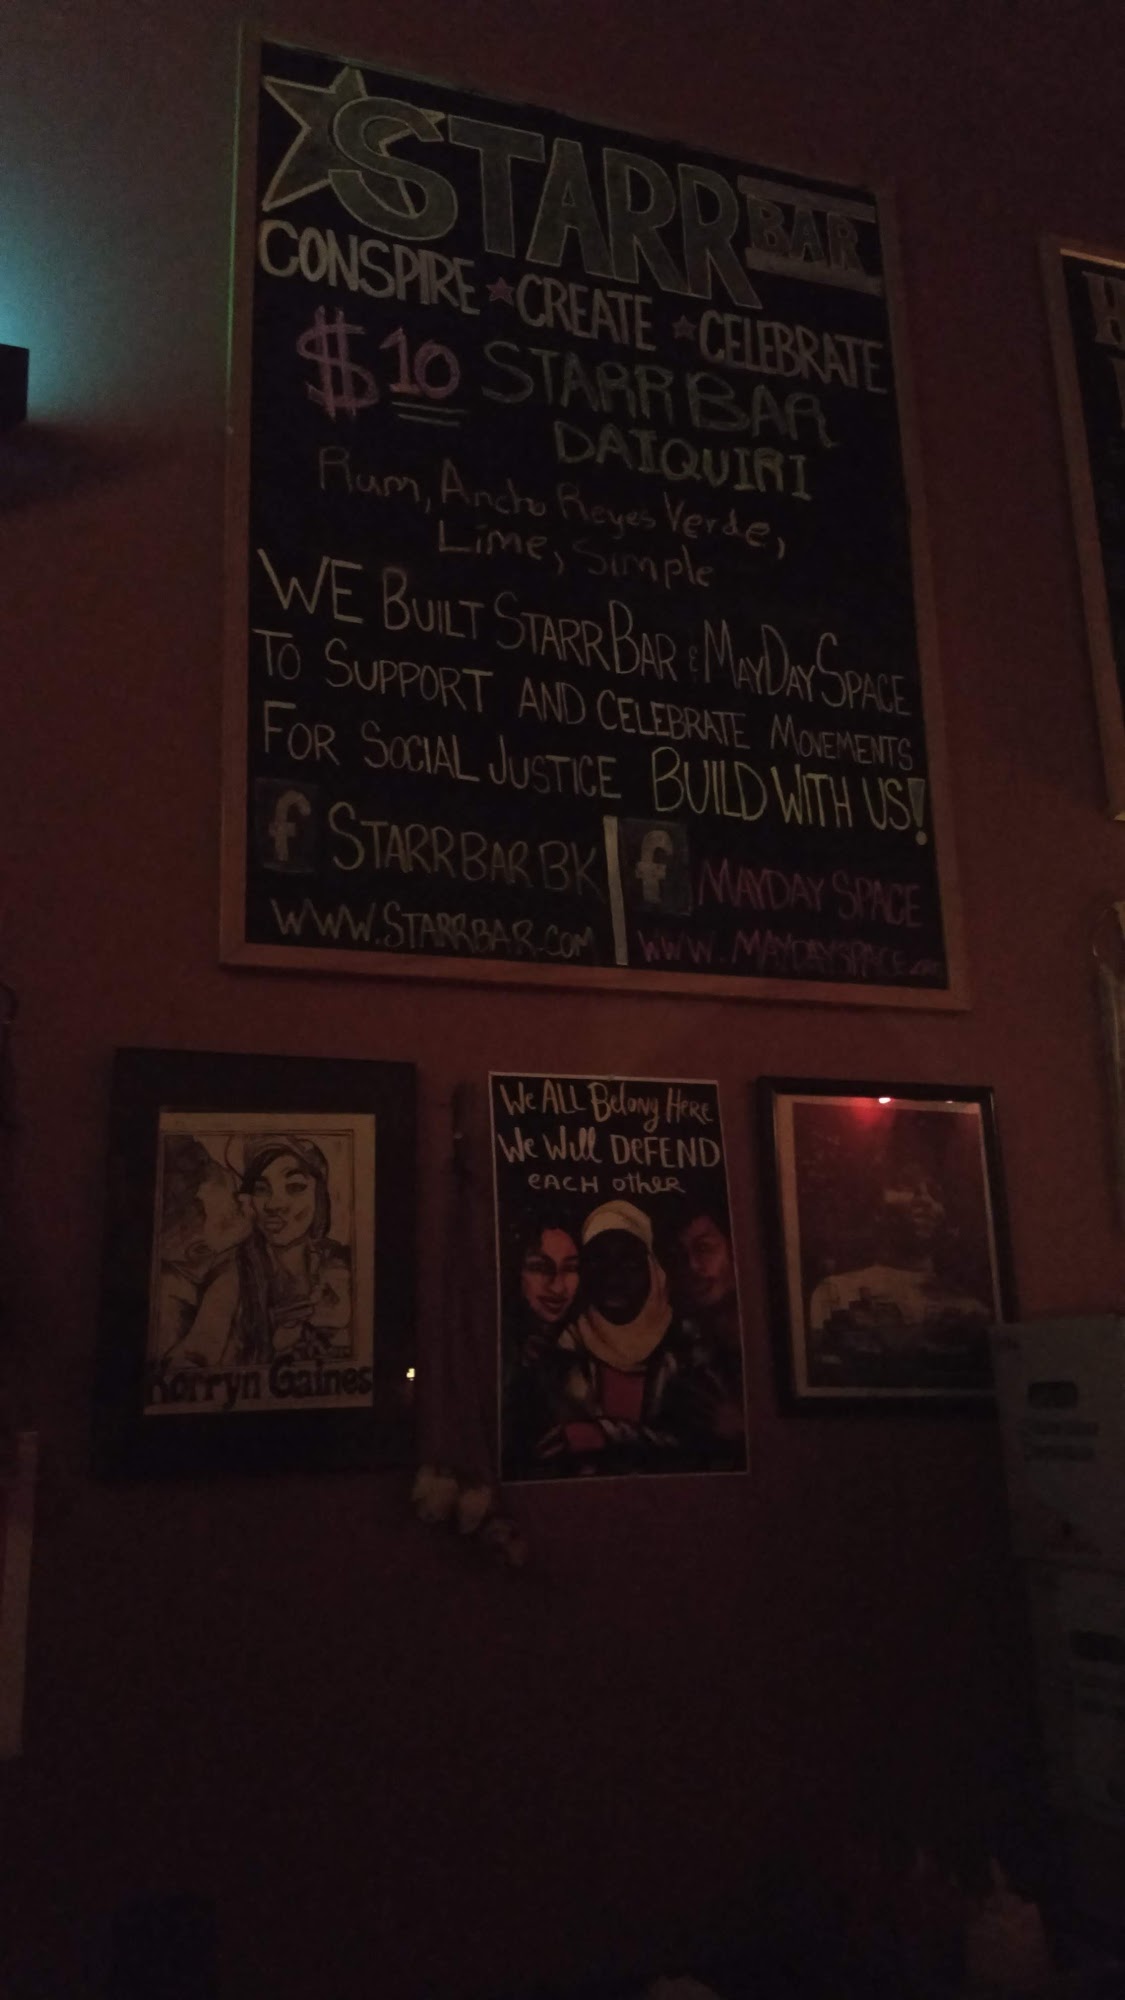 STARR BAR
CONSPIRE ★ CREATE ★ CELEBRATE
$10 STARR BAR
DAIQUIRI
Rum, Ancho Reyes Verde,
Lime, Simple
WE BUILT STARRBAR & MAYDAY SPACE
TO SUPPORT AND CELEBRATE MOVEMENTS
FOR SOCIAL JUSTICE BUILD WITH US!
f STARRBAR BK
WWW.STARRBAR.COM
f MAYDAY SPACE
WWW.MAYDAYSPACE.ORG
Korryn Gaines
We ALL Belong Here
We Will DeFEND
eACH otheR